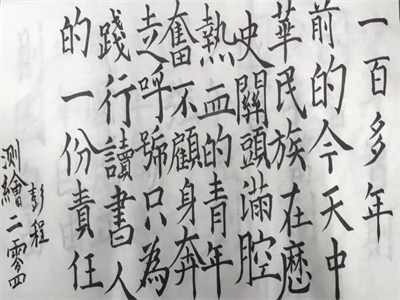 一百多年
前的今天中
華民族在歷
史關頭滿腔
熱血的青年
奮不顧身奔
走呼號只為
踐行讀書人
的一份責任
彭程
測繪二零四